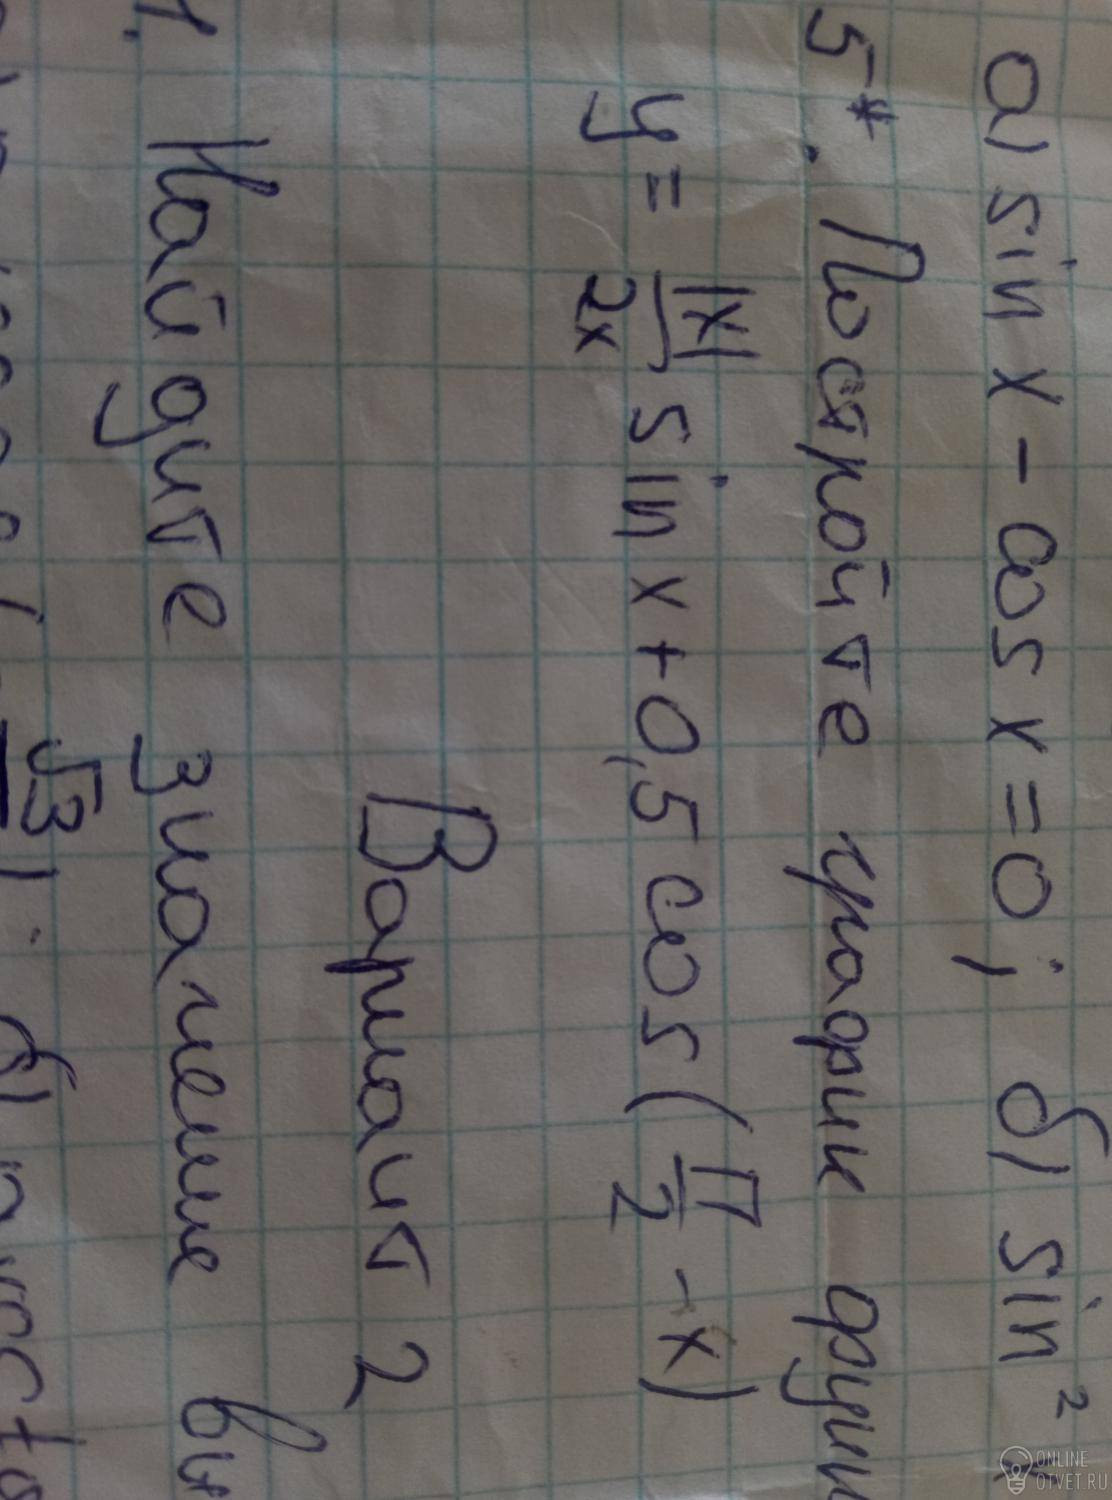 а) sin x - cos x = 0; б) sin²
5*. Постройте график функ
y = |x|/2x sin x + 0,5 cos (π/2 - x)
Вариант 2
1. Найдите значение вы
√3
ONLINE
OTVET.RU